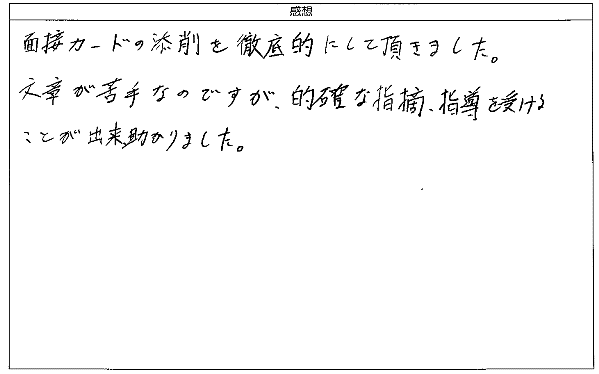 感想
面接カードの添削を徹底的にして頂きました。
文章が苦手なのですが、的確な指摘、指導を受ける
ことが出来助かりました。